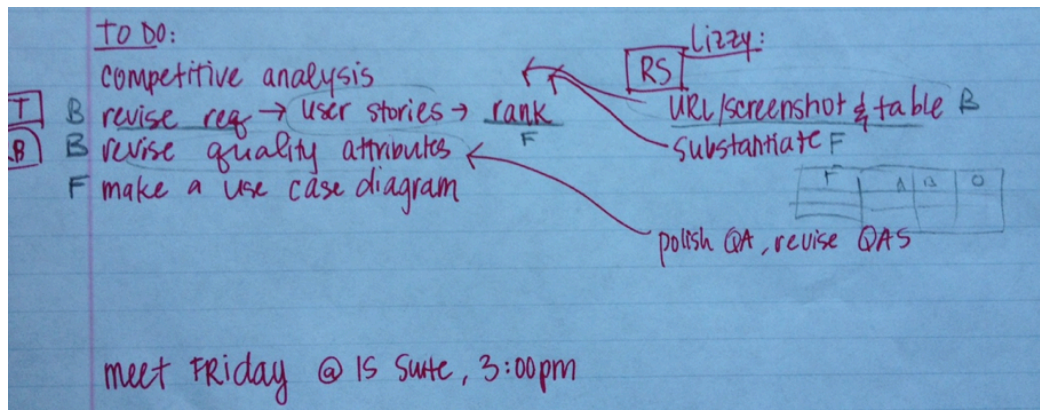 TO DO:
competitive analysis
T B revise req → user stories → rank F
B B revise quality attributes
F make a use case diagram
Lizzy:
RS
URL/screenshot & table B
substantiate F
F A B O
polish QA, revise QAS
meet FRiday @ IS Suite, 3:00pm